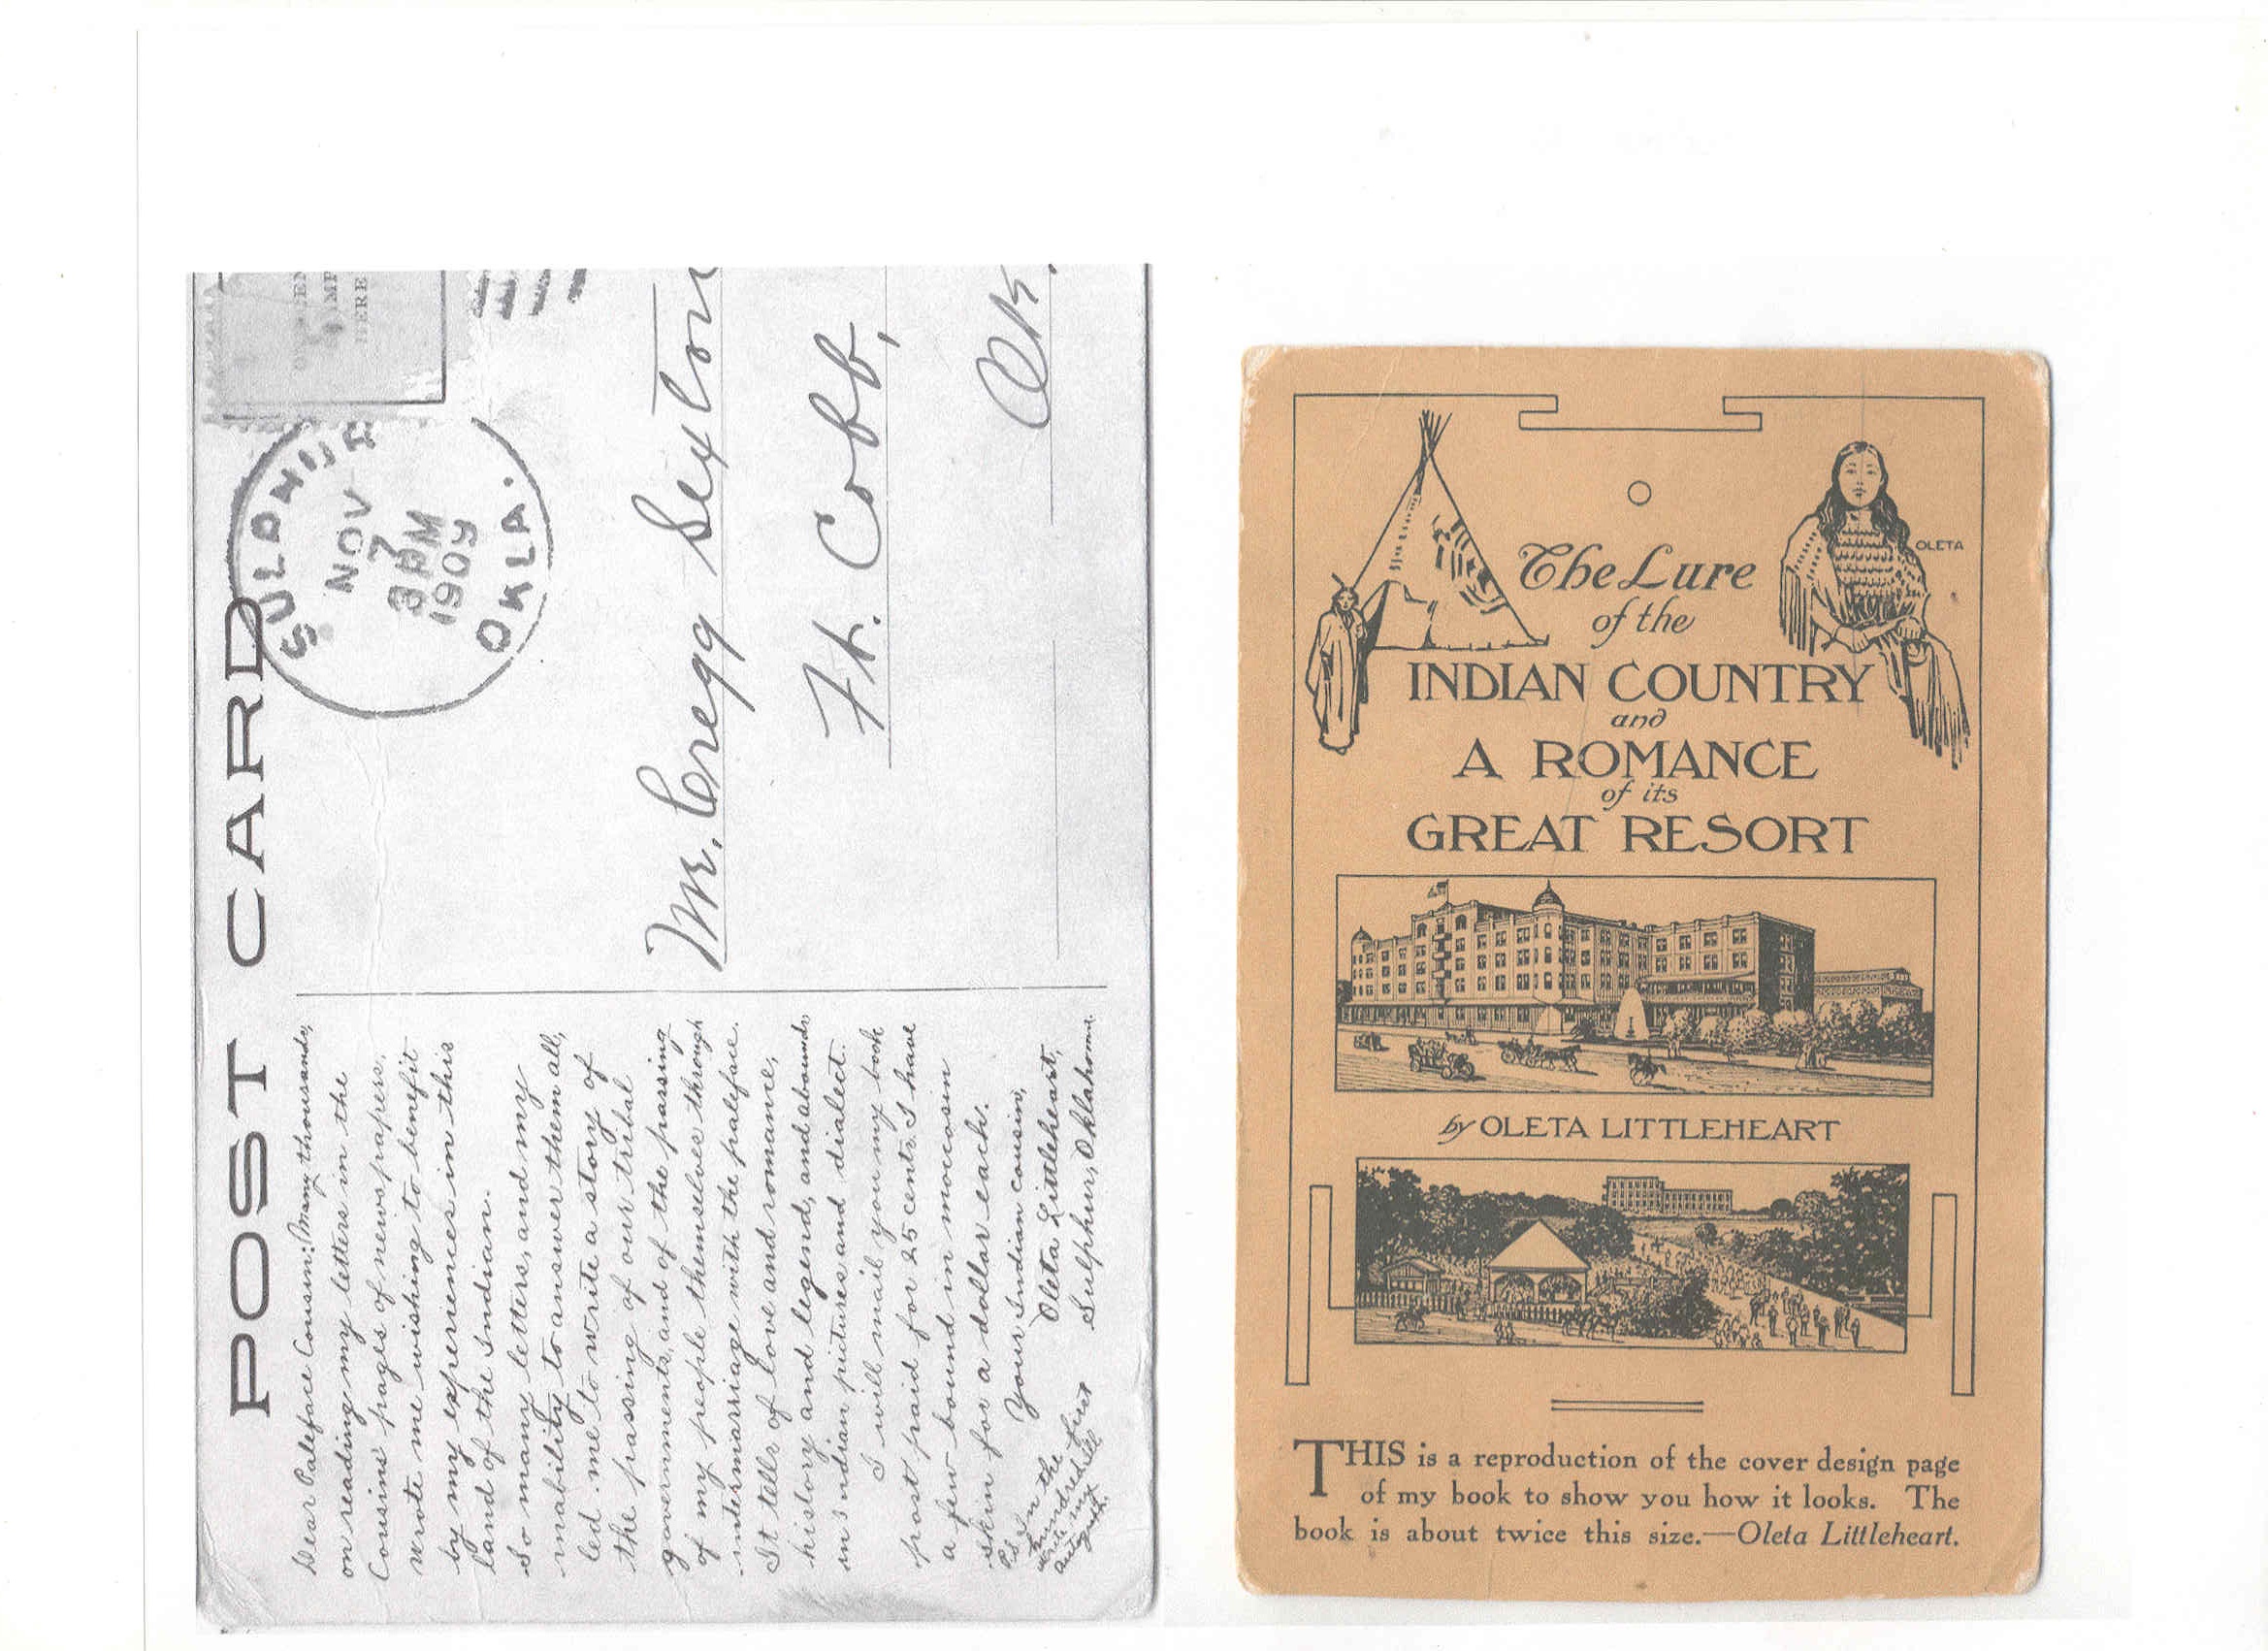 POST CARD
SULPHUR
NOV
7
3 PM
1909
OKLA.
HERE
Mr. Cregg Sexton
Ft. Cobb,
Ok.
Dear Paleface Cousin: Many thousands,
on reading my letters in the
Cousins' pages of newspapers,
wrote me wishing to benefit
by my experiences in this
land of the Indian.
So many letters, and my
inability to answer them all,
led me to write a story of
the passing of our tribal
governments, and of the passing
of my people themselves through
intermarriage with the paleface.
It tells of love and romance,
history and legend, and abounds
in Indian pictures and dialect.
I will mail you my book
post paid for 25 cents. I have
a few bound in moccasin
skin for a dollar each.
Your Indian cousin,
Oleta Littleheart,
Sulphur, Oklahoma.
P.S. In the first
hundred I'll
write my
autograph.
OLETA
The Lure
of the
INDIAN COUNTRY
and
A ROMANCE
of its
GREAT RESORT
by OLETA LITTLEHEART
THIS is a reproduction of the cover design page
of my book to show you how it looks. The
book is about twice this size.—Oleta Littleheart.